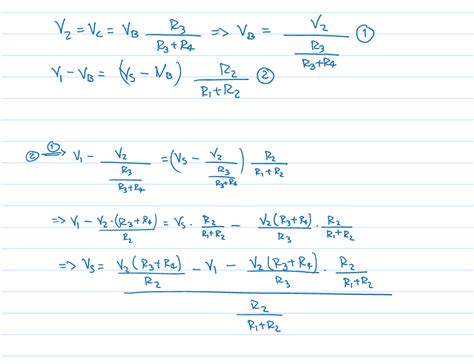 V₂ = V_C = V_B R₃/(R₃+R₄) => V_B = V₂/(R₃/(R₃+R₄)) ①
V₁ - V_B = (V_S - V_B) R₂/(R₁+R₂) ②
② ①→ V₁ - V₂/(R₃/(R₃+R₄)) = (V_S - V₂/(R₃/(R₃+R₄))) R₂/(R₁+R₂)
=> V₁ - V₂·(R₃+R₄)/R₂ = V_S · R₂/(R₁+R₂) - V₂(R₃+R₄)/R₃ · R₂/(R₁+R₂)
=> V_S = (V₂(R₃+R₄)/R₂ - V₁ - V₂(R₃+R₄)/R₃ · R₂/(R₁+R₂))/(R₂/(R₁+R₂))